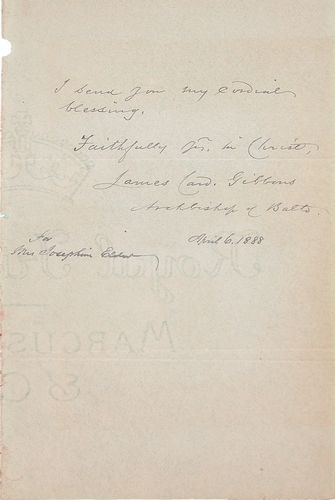 I send you my cordial
blessing.
Faithfully yrs. in Christ,
James Card. Gibbons
Archbishop of Balto.
April 6, 1888
For
Mrs Josephine
Royal
MARCUS
& C